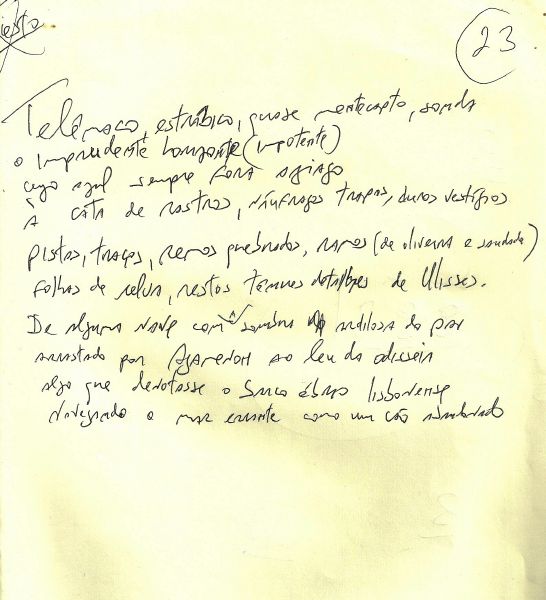 23
Telêmaco, estrábico, quase mentecapto, sonda
o imprudente horizonte (impotente)
cujo azul sempre fora aziago
À cata de rastros, náufragos trapos, duros vestígios
pistas, traços, remos quebrados, ramos (de oliveira e saudade)
folhas de relva, restos tenues detalhes de Ulisses.
De alguma nave com a sombra ardilosa do pai
arrastado por Agamenon ao leu da odisséia
algo que denotasse o barco ébrio lisbonense
navegando o mar errante como um cão